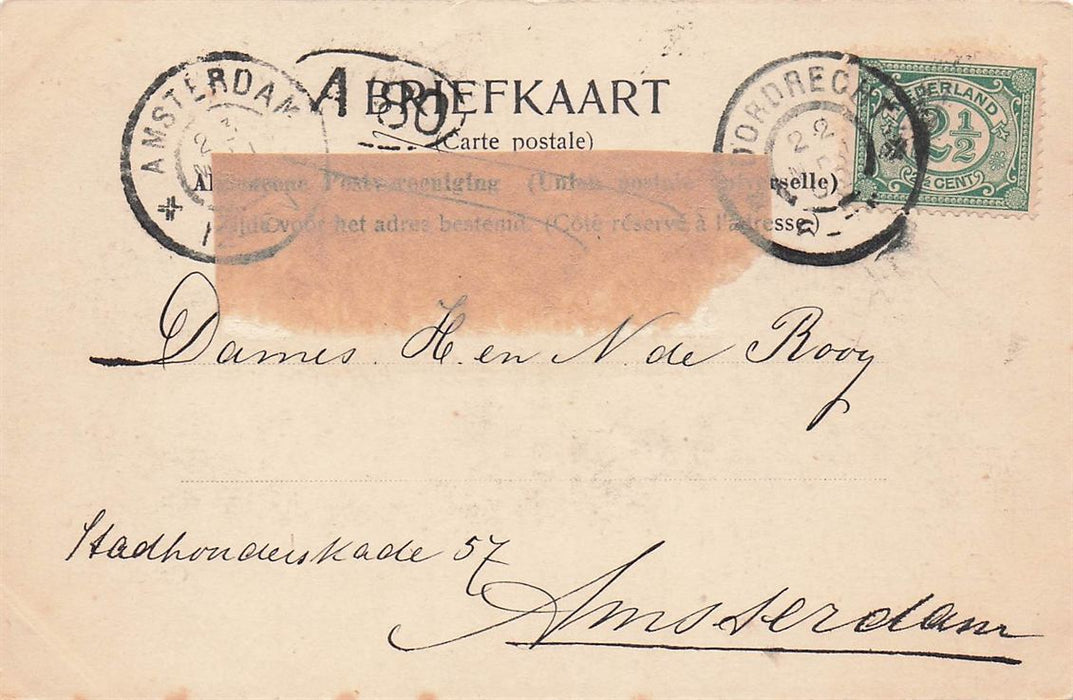 AMSTERDAM
A 80
BRIEFKAART
(Carte postale)
Algemeene Postvereeniging (Union postale universelle)
Zijde voor het adres bestemd. (Côté réservé à l'adresse)
DORDRECHT
NEDERLAND
2½
CENT
Dames H. en N. de Rooy
Stadhouderskade 57
Amsterdam